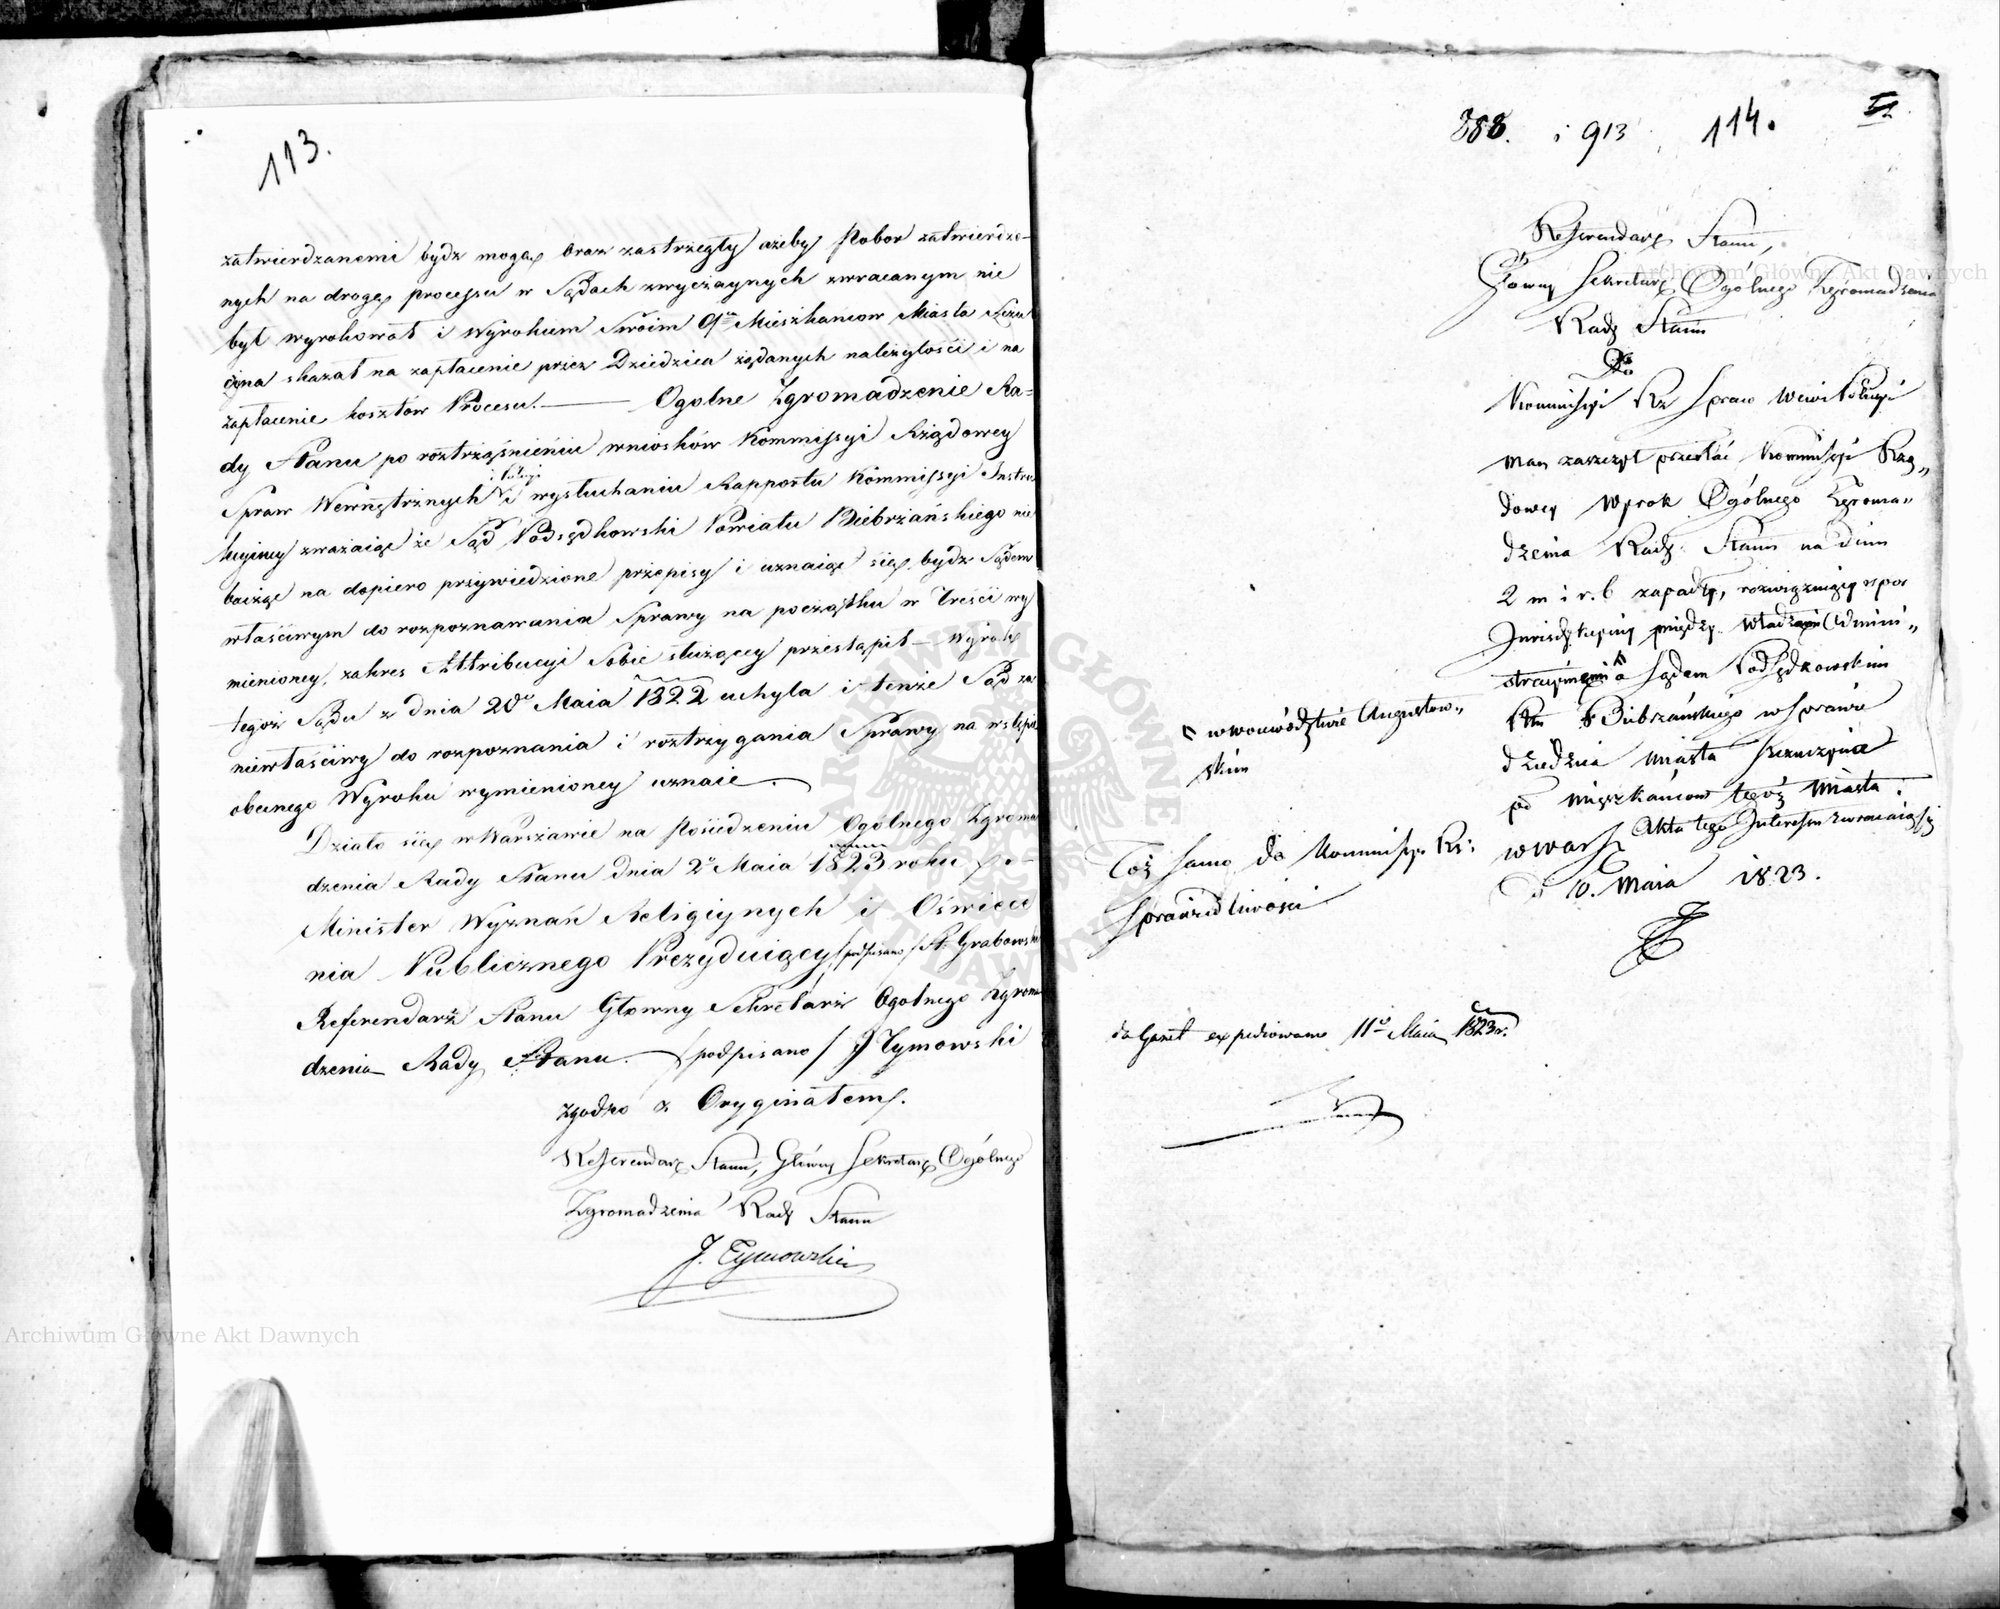 113.
zatwierdzanemi bydz mogą oraz zastrzegły ażeby pobor zatwierdzo-
nych na drogę processu w Sądach zwyczaynych zwracanym nie
był wyrokował i Wyrokiem Swoim Mieszkancow Miasta Szczu
czyna skazał na zapłacenie przez Dziedzica żądanych należytości i na
zapłacenie kosztow Processu. — Ogolne Zgromadzenie Ra-
dy Stanu po roztrząśnieniu wniosków Kommissyi Rządowey
Spraw Wewnętrznych i Policyi i wysłuchaniu Rapportu Kommissyi Instru
kcyiney zważaiąc że Sąd Podsędkowski Powiatu Biebrzańskiego nie
bacząc na dopiero przywiedzione przepisy i uznaiąc się bydz Sądem
właściwym do rozpoznawania Sprawy na początku w treści wy
mienioney, zakres Attribucyi Sobie służącey przestąpił — Wyrok
tegoż Sądu z dnia 20go Maia 1822 uchyla i tenże Sąd za
niewłaściwy do rozpoznania i roztrzygania Sprawy na wstępie
obecnego Wyroku wymienioney uznaie.
Działo się w Warszawie na Posiedzeniu Ogólnego Zgroma
dzenia Rady Stanu dnia 2go Maia 1823 roku
Minister Wyznań Religiynych i Oświece
nia Publicznego Prezyduiący /podpisano/ St. Grabowski
Referendarz Stanu Głowny Sekretarz Ogolnego Zgroma
dzenia Rady Stanu. — /podpisano/ J Tymowski
zgodno z Oryginałem.
Referendarz Stanu, Główny Sekretarz Ogólnego
Zgromadzenia Rady Stanu
J. Tymowski
888. i 913 114.
Referendarz Stanu,
Głowny Sekretarz Ogólnego Zgromadzenia
Rady Stanu
Do
Kommissyi Rz Spraw Wew i Policyi
mam zaszczyt przesłać Kommissyi Rzą„
dowey wyrok Ogólnego Zgroma„
dzenia Rady Stanu na dniu
2 m i r. b zapadły, rozwiązuiący spor
Jurisdykcyiny między Władzami Admini„
stracyinemi a Sądem Podsędkowskim
Ptu Biebrzańskiego w sprawie
dziedzica miasta Szczuczyna
po mieszkańcow tegoż Miasta.
Akta tego Interessu zwracaiąc
w Warsz
D 10. Maia 1823.
w woiewództwie Augustow„
skim
Toż samo do Kommissyi Rz:
Sprawiedliwości
expediowano 11go Maia 1823 r.
Archiwum Główne Akt Dawnych
Archiwum Główne Akt Dawnych
ARCHIWUM GŁÓWNE AKT DAWNYCH